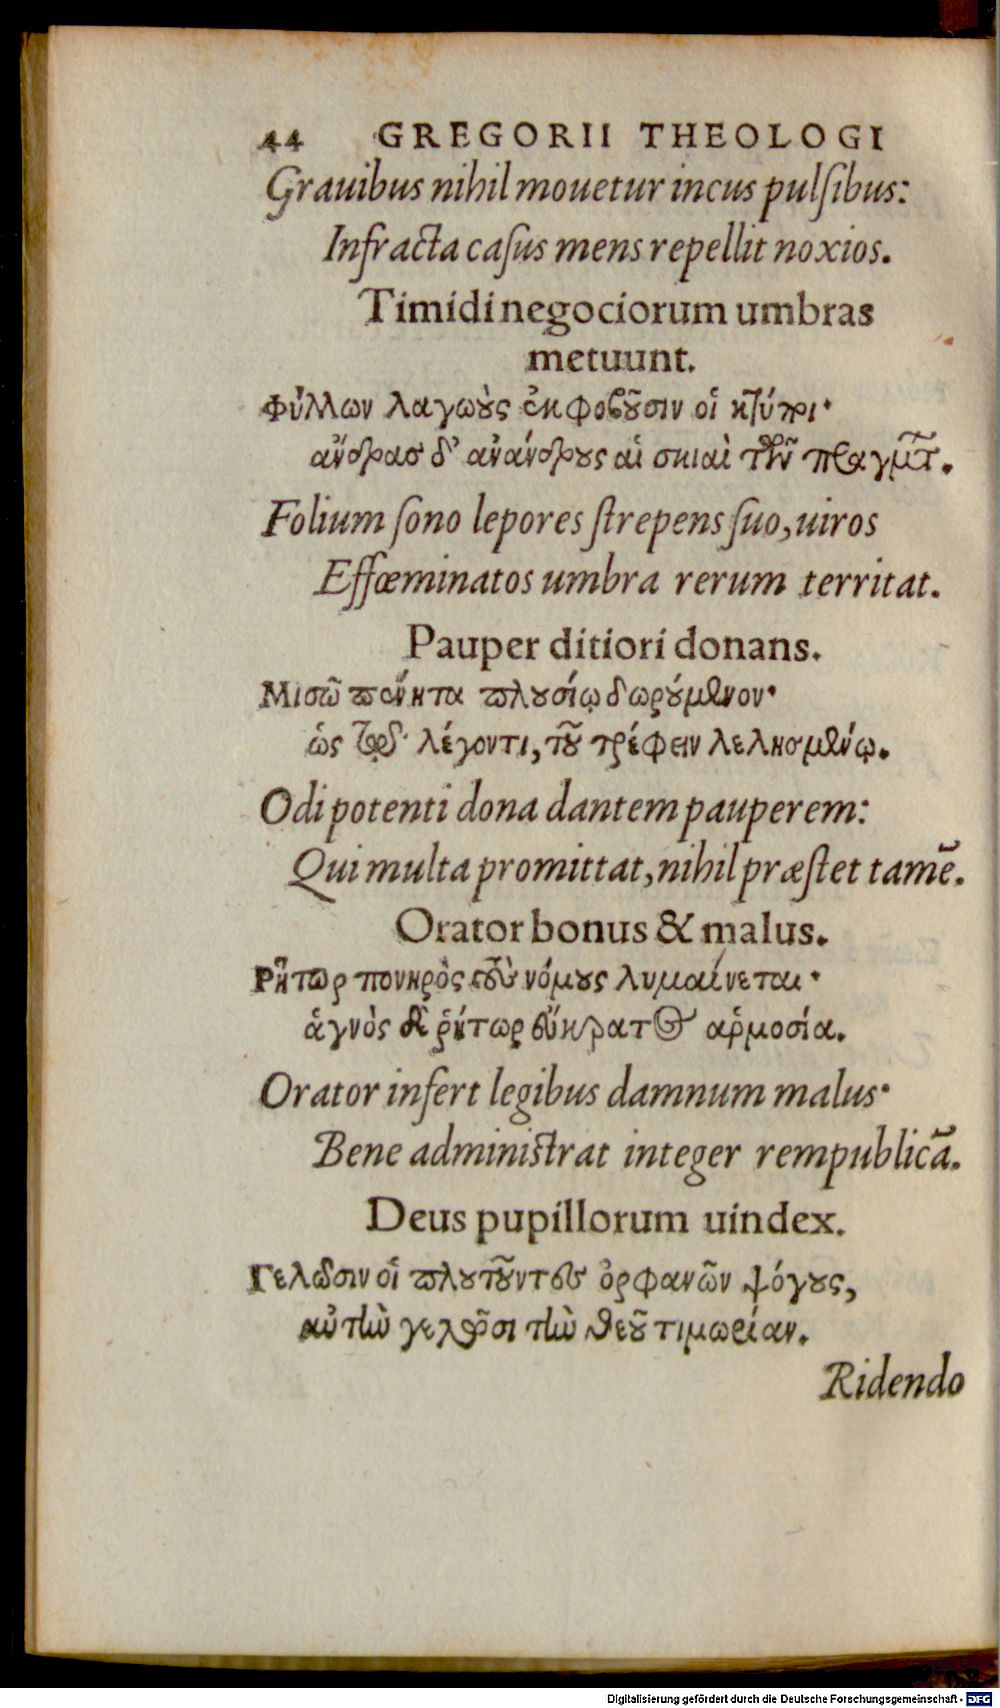 44 GREGORII THEOLOGI
Grauibus nihil mouetur incus pulſibus:
Infracta caſus mens repellit noxios.
Timidi negociorum umbras
metuunt.
Φύλλων λαγωοὺς ἐκφοβοῦσιν οἱ κτύποι·
ἄνδρασ δ' ἀνάνδρους αἱ σκιαὶ τῶν πραγμάτ.
Folium ſono lepores ſtrepens ſuo, uiros
Effœminatos umbra rerum territat.
Pauper ditiori donans.
Μισῶ πένητα πλουσίῳ δωρούμενον·
ὡς λέγοντι, τοῦ τρέφειν λελησμένῳ.
Odi potenti dona dantem pauperem:
Qui multa promittat, nihil præſtet tamē.
Orator bonus & malus.
Ρήτωρ πονηρὸς τοὺς νόμους λυμαίνεται·
ἁγνὸς δὲ ῥήτωρ εὔκρατος ἁρμοσία.
Orator infert legibus damnum malus·
Bene adminiſtrat integer rempublicā.
Deus pupillorum uindex.
Γελῶσιν οἱ πλουτοῦντες ὀρφανῶν ψόγους,
αὐτὴν γελῶσι τὴν θεοῦ τιμωρίαν.
Ridendo
Digitalisierung gefördert durch die Deutsche Forschungsgemeinschaft - DFG